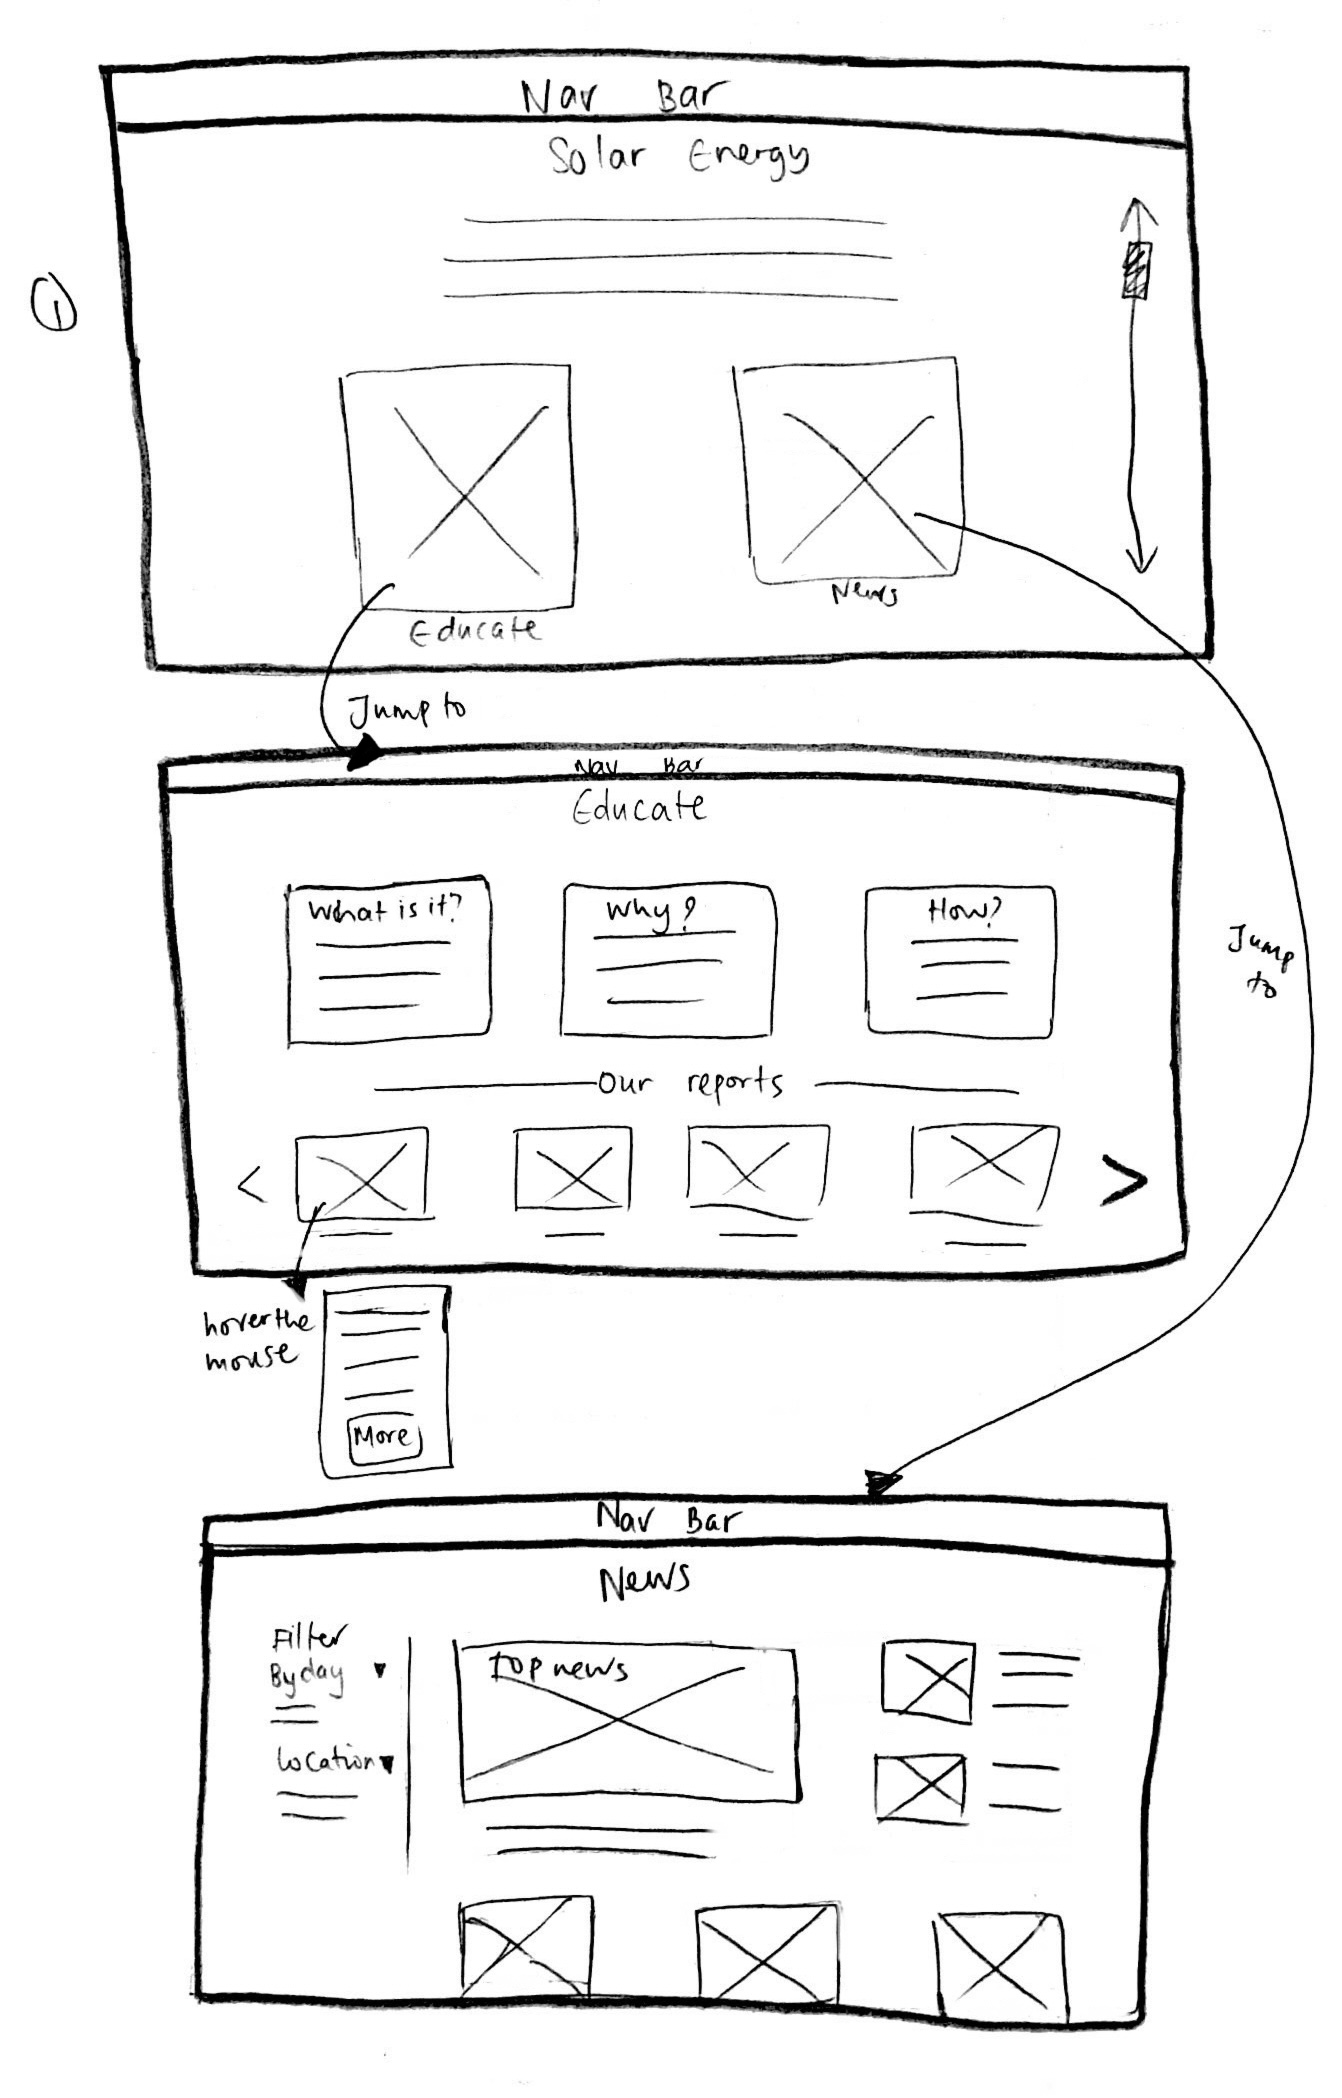 Nav Bar
Solar Energy
1
Educate
News
Jump to
Nav Bar
Educate
What is it?
Why?
How?
Jump
to
Our reports
< >
hover the
mouse
More
Nav Bar
News
Filter
By day ▼
Location ▼
Top news